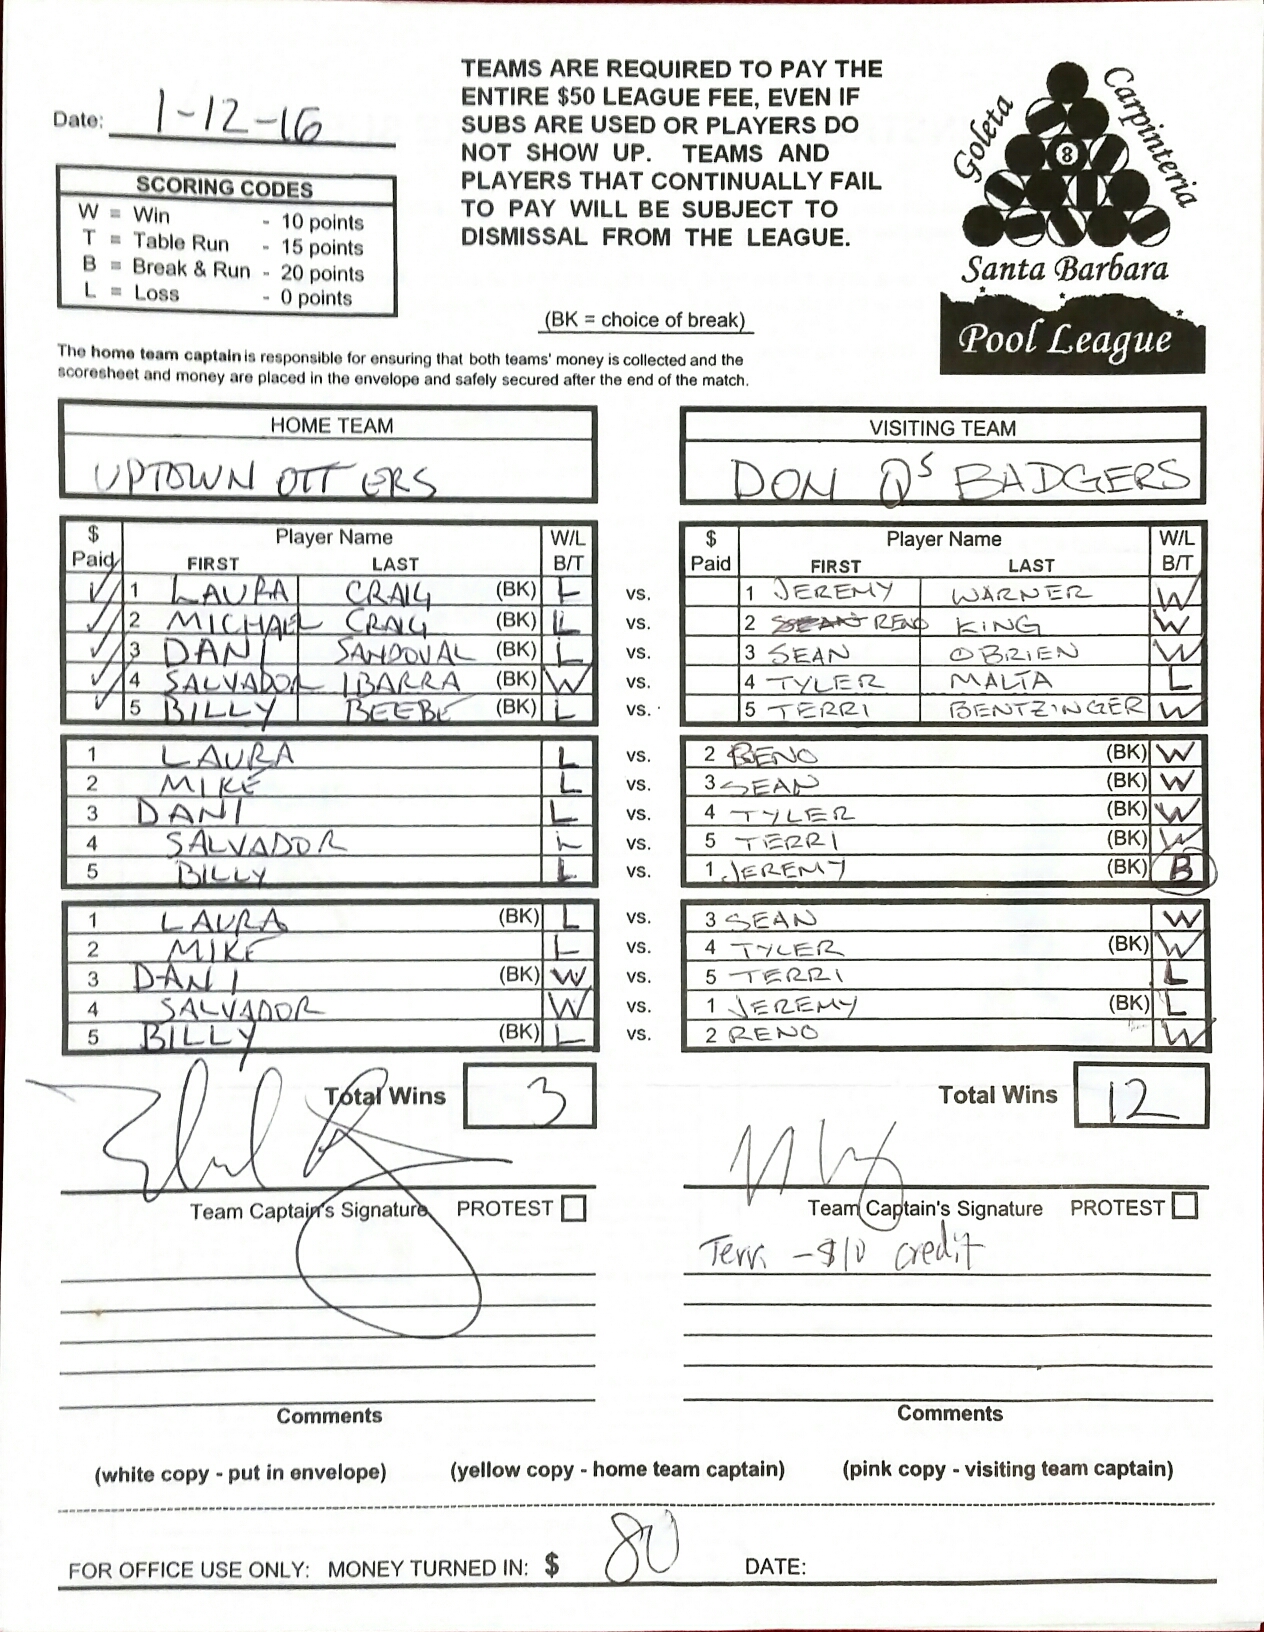 Date: 1-12-16
TEAMS ARE REQUIRED TO PAY THE
ENTIRE $50 LEAGUE FEE, EVEN IF
SUBS ARE USED OR PLAYERS DO
NOT SHOW UP. TEAMS AND
PLAYERS THAT CONTINUALLY FAIL
TO PAY WILL BE SUBJECT TO
DISMISSAL FROM THE LEAGUE.
(BK = choice of break)
Goleta
Carpinteria
8
Santa Barbara
Pool League
SCORING CODES
W = Win - 10 points
T = Table Run - 15 points
B = Break & Run - 20 points
L = Loss - 0 points
The home team captain is responsible for ensuring that both teams' money is collected and the
scoresheet and money are placed in the envelope and safely secured after the end of the match.
HOME TEAM VISITING TEAM
UPTOWN OTTERS DON Q'S BADGERS
$ Player Name W/L $ Player Name W/L
Paid FIRST LAST B/T Paid FIRST LAST B/T
✓ 1 LAURA CRAIG (BK) L vs. 1 JEREMY WARNER W
✓ 2 MICHAEL CRAIG (BK) L vs. 2 SEAN RENO KING W
✓ 3 DANI SANDOVAL (BK) L vs. 3 SEAN OBRIEN W
✓ 4 SALVADOR IBARRA (BK) W vs. 4 TYLER MALTA L
✓ 5 BILLY BEEBE (BK) L vs. 5 TERRI BENTZINGER W
1 LAURA L vs. 2 RENO (BK) W
2 MIKE L vs. 3 SEAN (BK) W
3 DANI L vs. 4 TYLER (BK) W
4 SALVADOR L vs. 5 TERRI (BK) W
5 BILLY L vs. 1 JEREMY (BK) B
1 LAURA (BK) L vs. 3 SEAN W
2 MIKE L vs. 4 TYLER (BK) W
3 DANI (BK) W vs. 5 TERRI L
4 SALVADOR W vs. 1 JEREMY (BK) L
5 BILLY (BK) L vs. 2 RENO W
Total Wins 3 Total Wins 12
Team Captain's Signature PROTEST Team Captain's Signature PROTEST
Terri -$10 credit
Comments Comments
(white copy - put in envelope) (yellow copy - home team captain) (pink copy - visiting team captain)
FOR OFFICE USE ONLY: MONEY TURNED IN: $ 80 DATE: